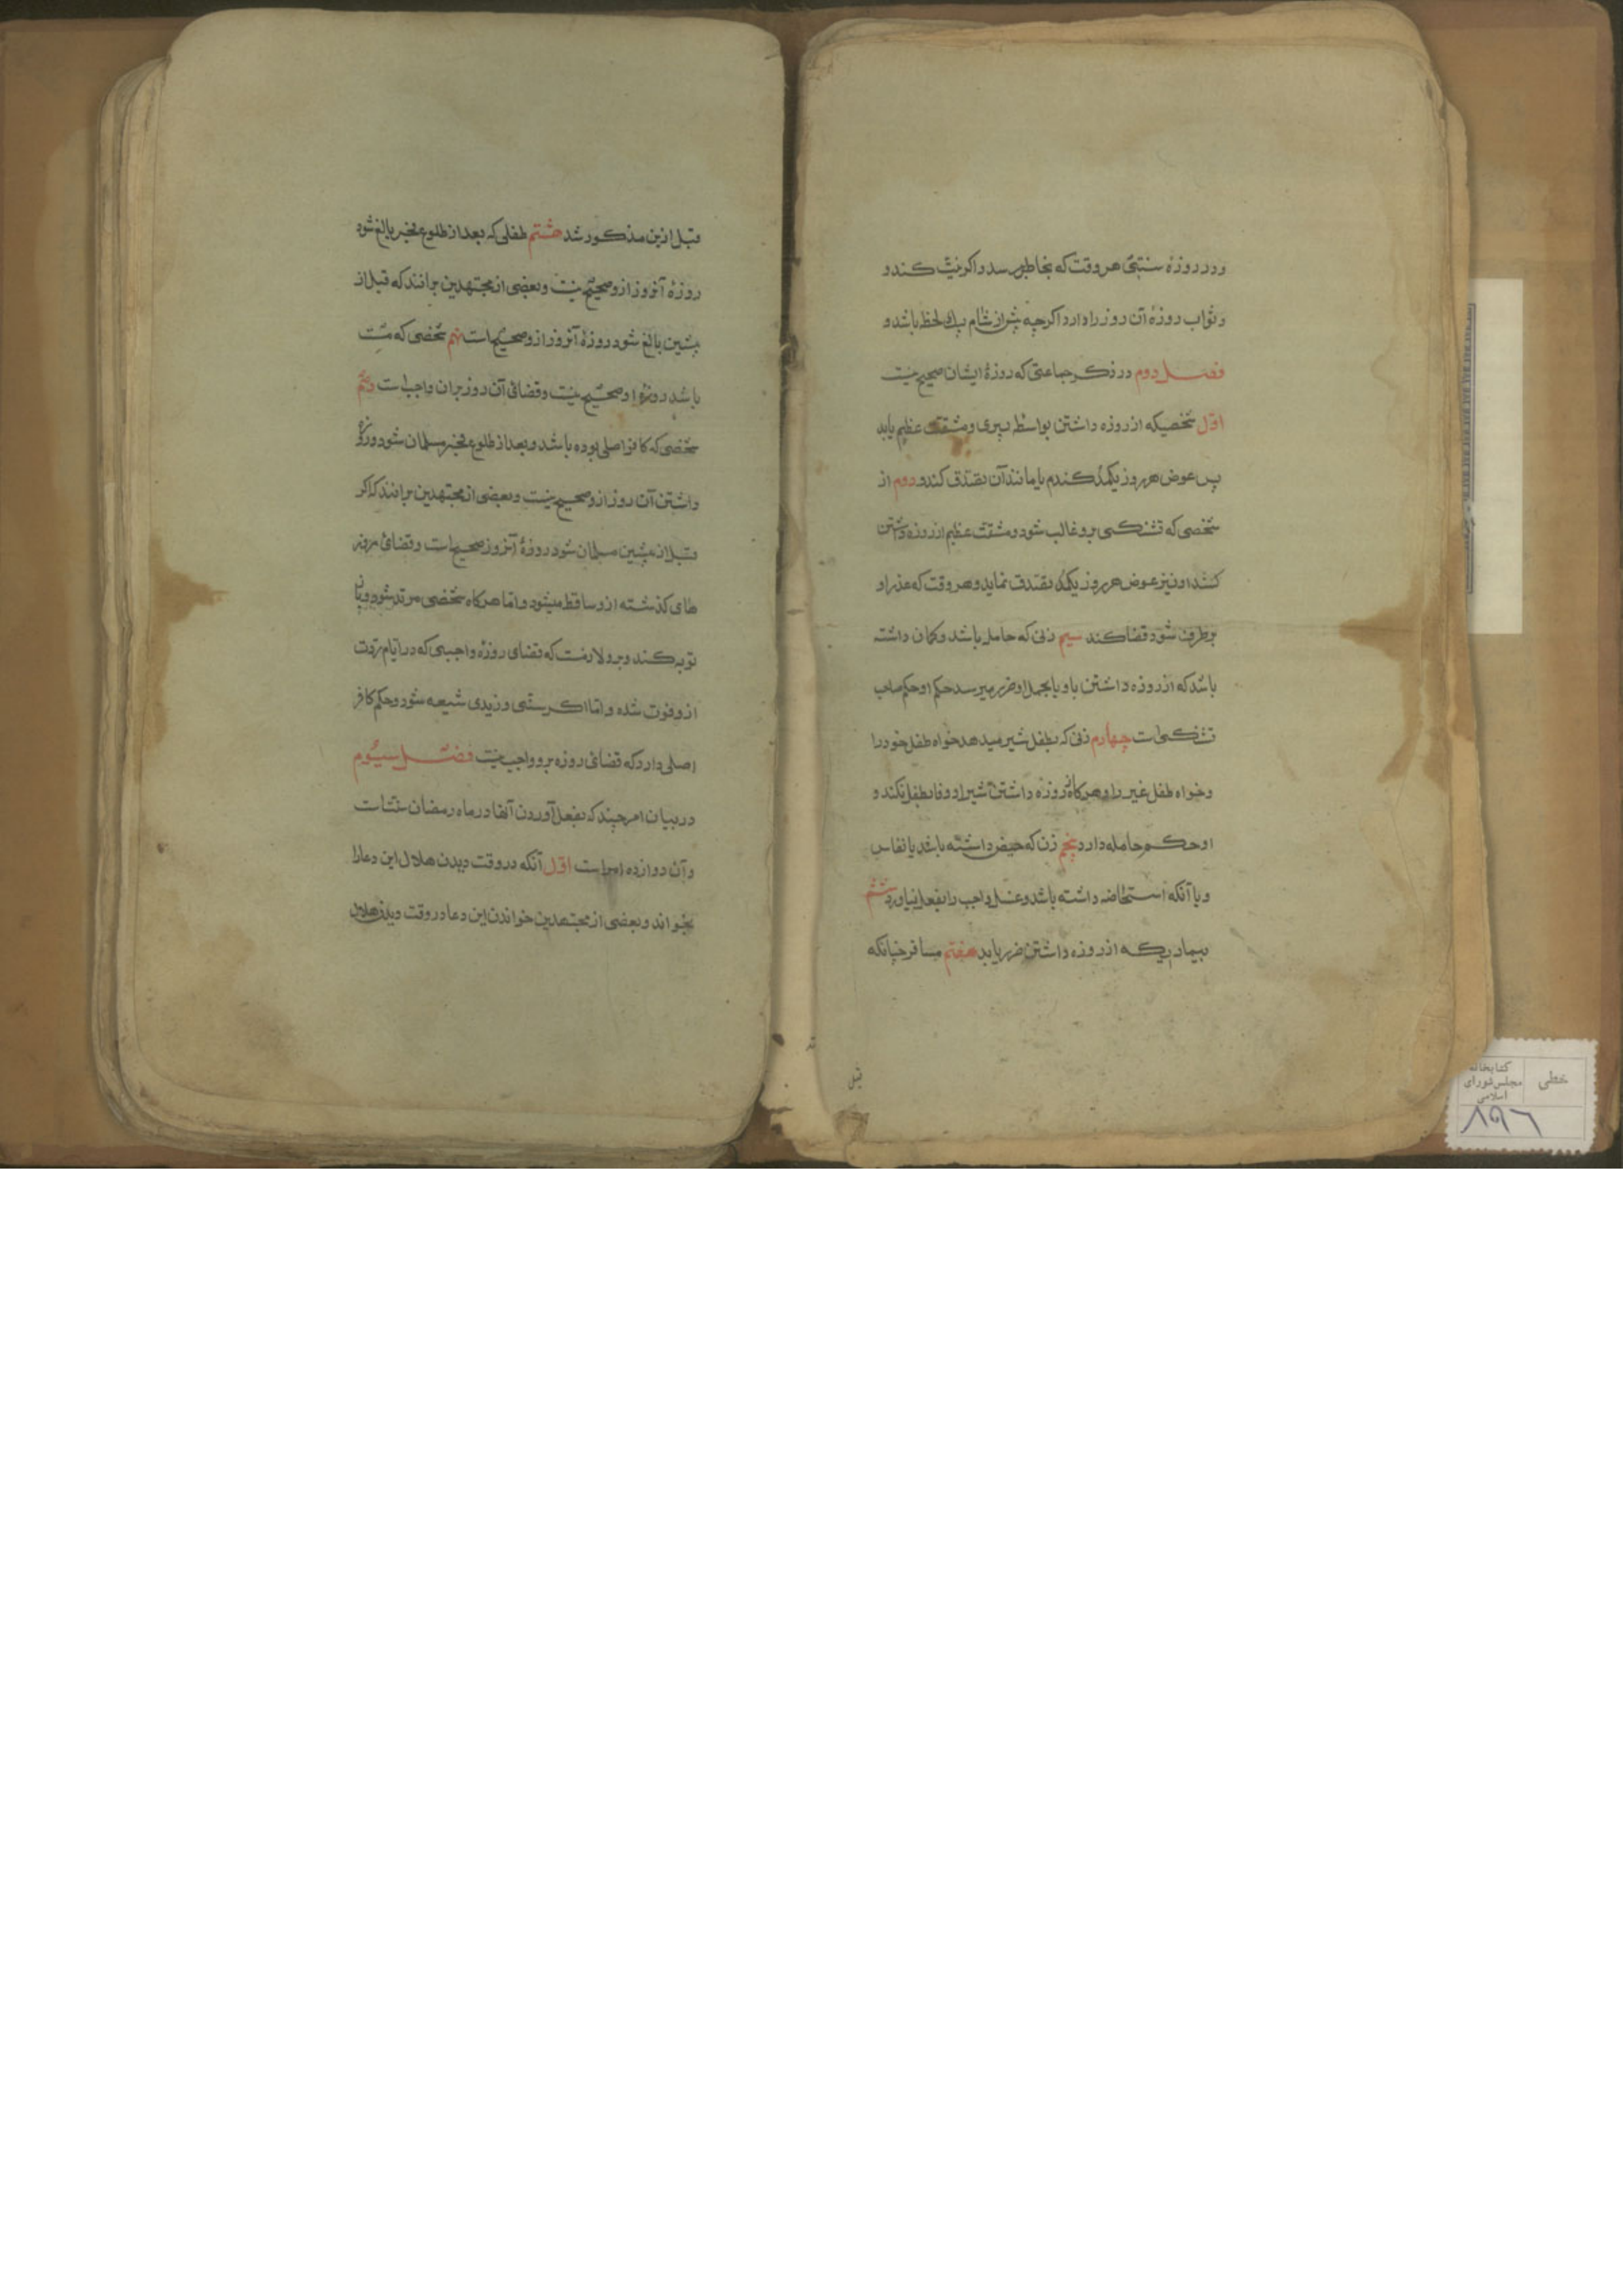 ودر روزهٔ سنتی هر وقت که بخاطر رسد و اکر نیت کند و
و ثواب روزهٔ آن روز را دارد اکرچه پیش از شام بیک لحظه باشد و
فصل دوم در ذکر جماعتی که روزهٔ ایشان صحیح نیست
اوّل شخصیکه از روزه داشتن بواسطهٔ پیری و مشقت عظیم یابد
پس عوض هر روز یکمدّ کندم یا مانند آن تصدّق کند و دوم از
شخصی که تشنکی برو غالب شود و مشقت عظیم از روزه داشتن
کشد او نیز عوض هر روز یکمدّ تصدق نماید و هر وقت که عذر او
برطرف شود قضا کند سیم زنی که حامله باشد و کمان داشته
باشد که از روزه داشتن باو یا بحمل او ضرر میرسد حکم او حکم صاحب
تشنکی است چهارم زنی که بطفل شیر میدهد خواه طفل خود را
و خواه طفل غیر را و هرکاه از روزه داشتن شیر او وفا بطفل نکند و
او حکم حامله دارد پنجم زن که حیض داشته باشد یا نفاس
و یا آنکه استحاضه داشته باشد و غسل واجب را بفعل نیاورد ششم
بیماریکه از روزه داشتن ضرر یابد هفتم مسافر چنانکه
قبل
قبل ازین مذکور شد هشتم طفلی که بعد از طلوع فجر بالغ شود
روزهٔ آنروز ازو صحیح نیست و بعضی از مجتهدین برانند که قبل از
پیشین بالغ شود روزهٔ آنروز ازو صحیح است نهم شخصی که مست
باشد روزهٔ او صحیح نیست و قضائ آن روز بران واجب است دهم
شخصی که کافر اصلی بوده باشد و بعد از طلوع فجر مسلمان شود روزهٔ
داشتن آن روز ازو صحیح نیست و بعضی از مجتهدین برانند که اکر
قبل از پیشین مسلمان شود روزهٔ آنروز صحیح است و قضائ روزه
های کذشته ازو ساقط میشود و اما هرکاه شخصی مرتد شود و باز
توبه کند و برو لازمست که قضای روزهٔ واجبی که در ایام ردّت
ازو فوت شده و اما اکر سنّی و زیدی شیعه شود و حکم کافر
اصلی دارد که قضائ روزه برو واجب نیست فصل سیّوم
در بیان امر چند که بفعل آوردن آنها در ماه رمضان سنّت است
و آن دوازده امر است اوّل آنکه در وقت دیدن هلال این دعا را
بخواند و بعضی از مجتهدین خواندن این دعا در وقت دیدن هلال
خطی
کتابخانه
مجلس شورای
اسلامی
۸۹۶